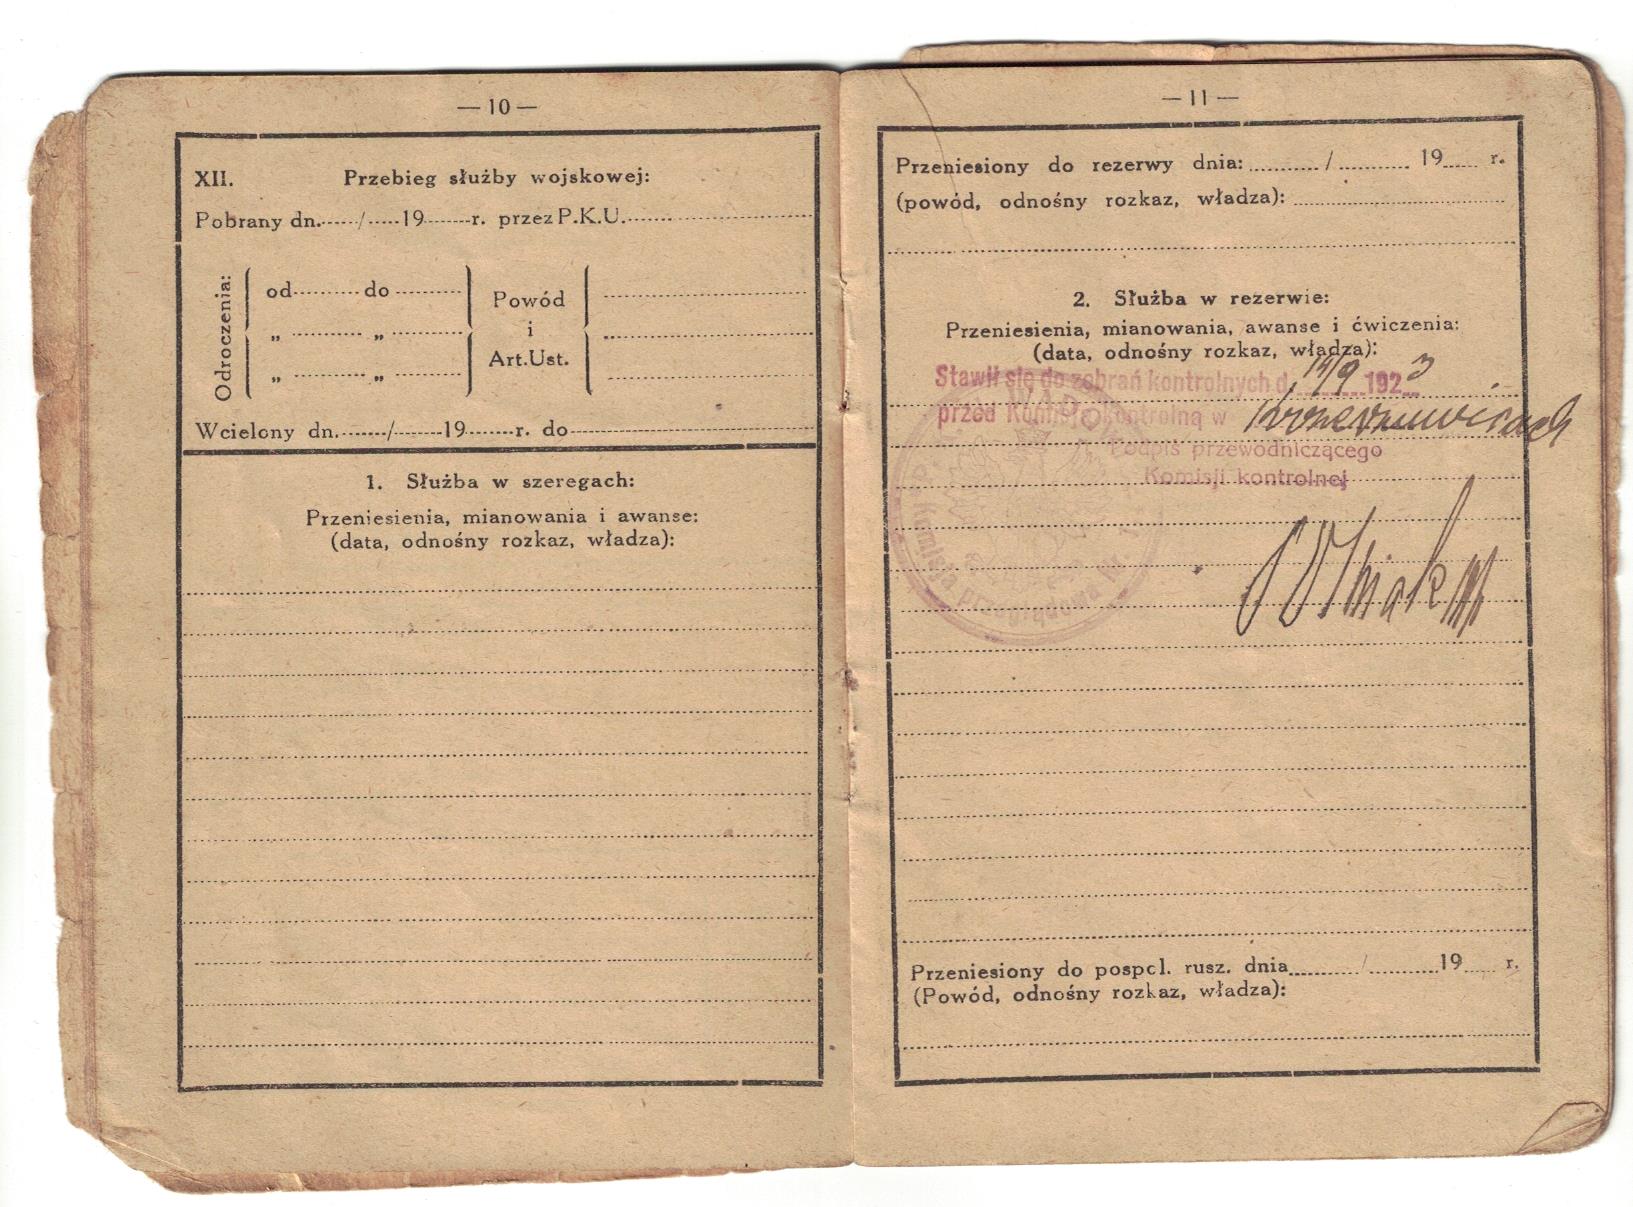 — 10 —
XII. Przebieg służby wojskowej:
Pobrany dn.____/____19____r. przez P.K.U.____
Odroczenia:
od____do____
„ ____ „ ____
„ ____ „ ____
Powód
i
Art.Ust.
Wcielony dn.____/____19____r. do____
1. Służba w szeregach:
Przeniesienia, mianowania i awanse:
(data, odnośny rozkaz, władza):
— 11 —
Przeniesiony do rezerwy dnia:____/____ 19____ r.
(powód, odnośny rozkaz, władza):____
2. Służba w rezerwie:
Przeniesienia, mianowania, awanse i ćwiczenia:
(data, odnośny rozkaz, władza):
Stawił się do zebrań kontrolnych d. /9 1923
przed Komisją kontrolną w
Podpis przewodniczącego
Komisji kontrolnej
Przeniesiony do pospol. rusz. dnia____/____19____ r.
(Powód, odnośny rozkaz, władza):